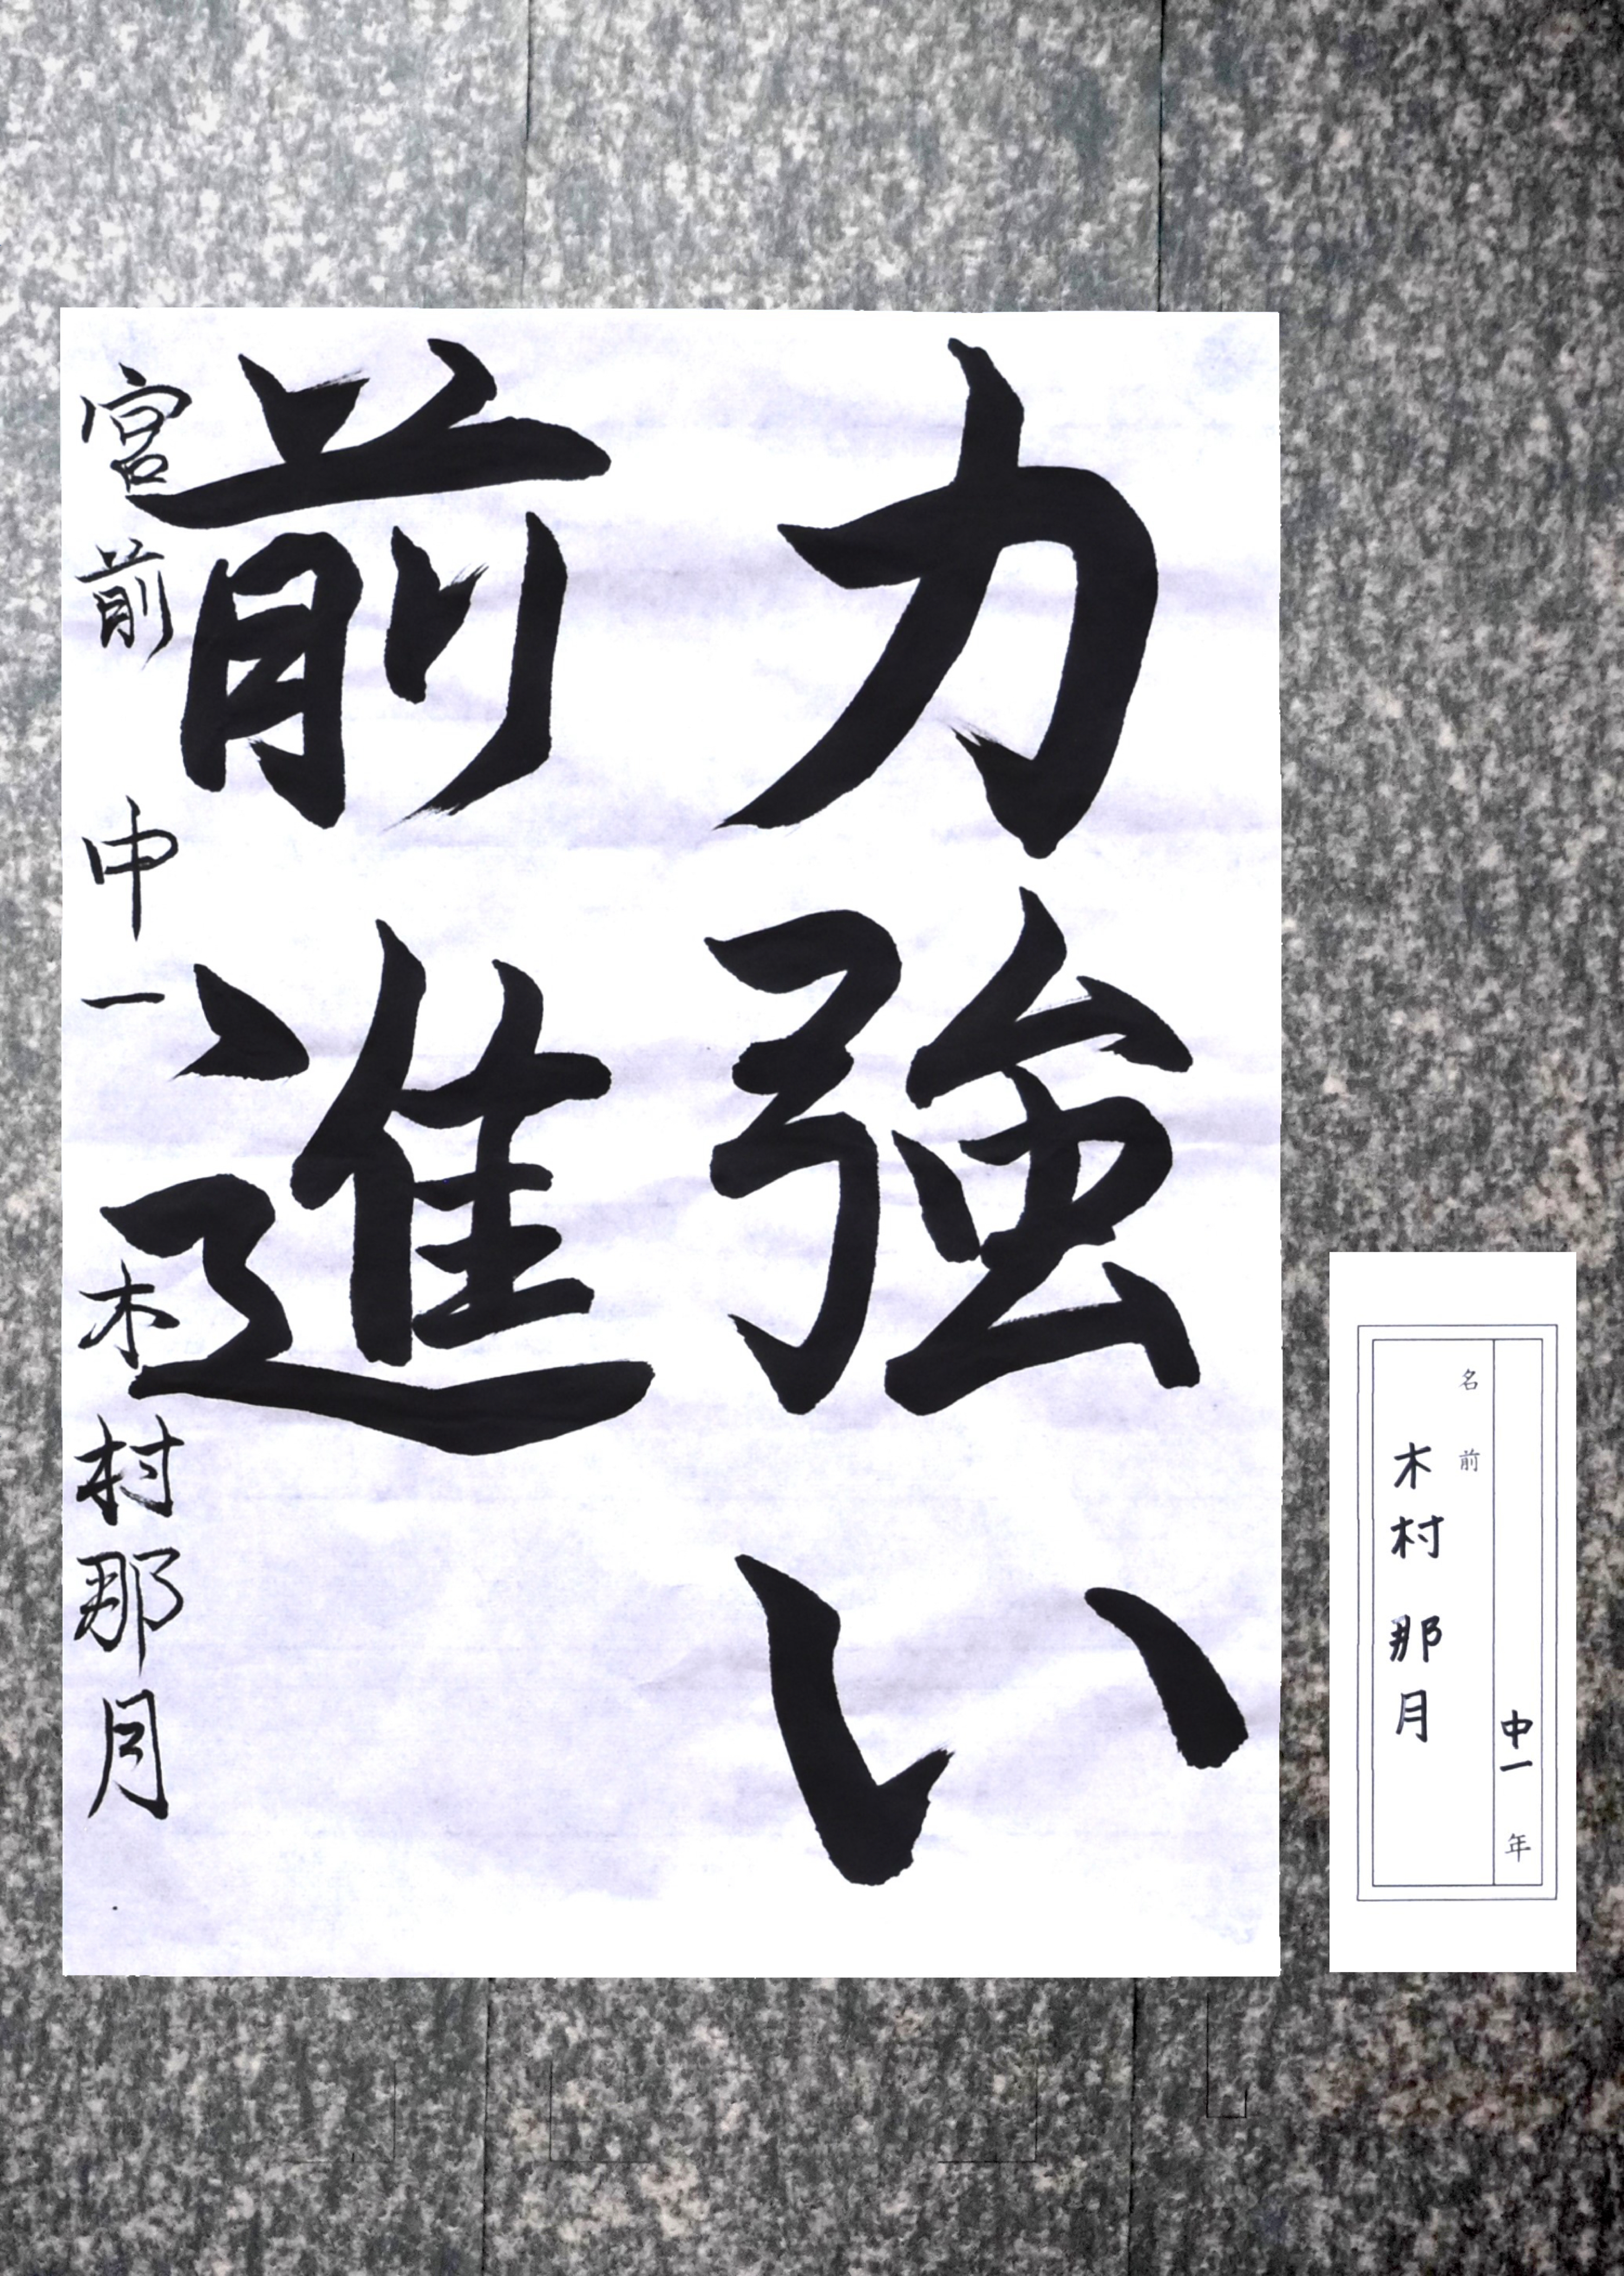 力強い
前進
宮前 中一 木村那月
中一 年
名前
木村 那月